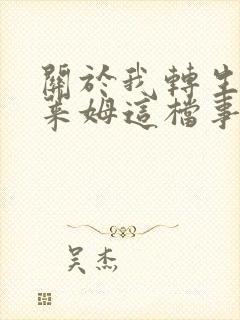 關於我轉生
萊姆這檔事
吴杰